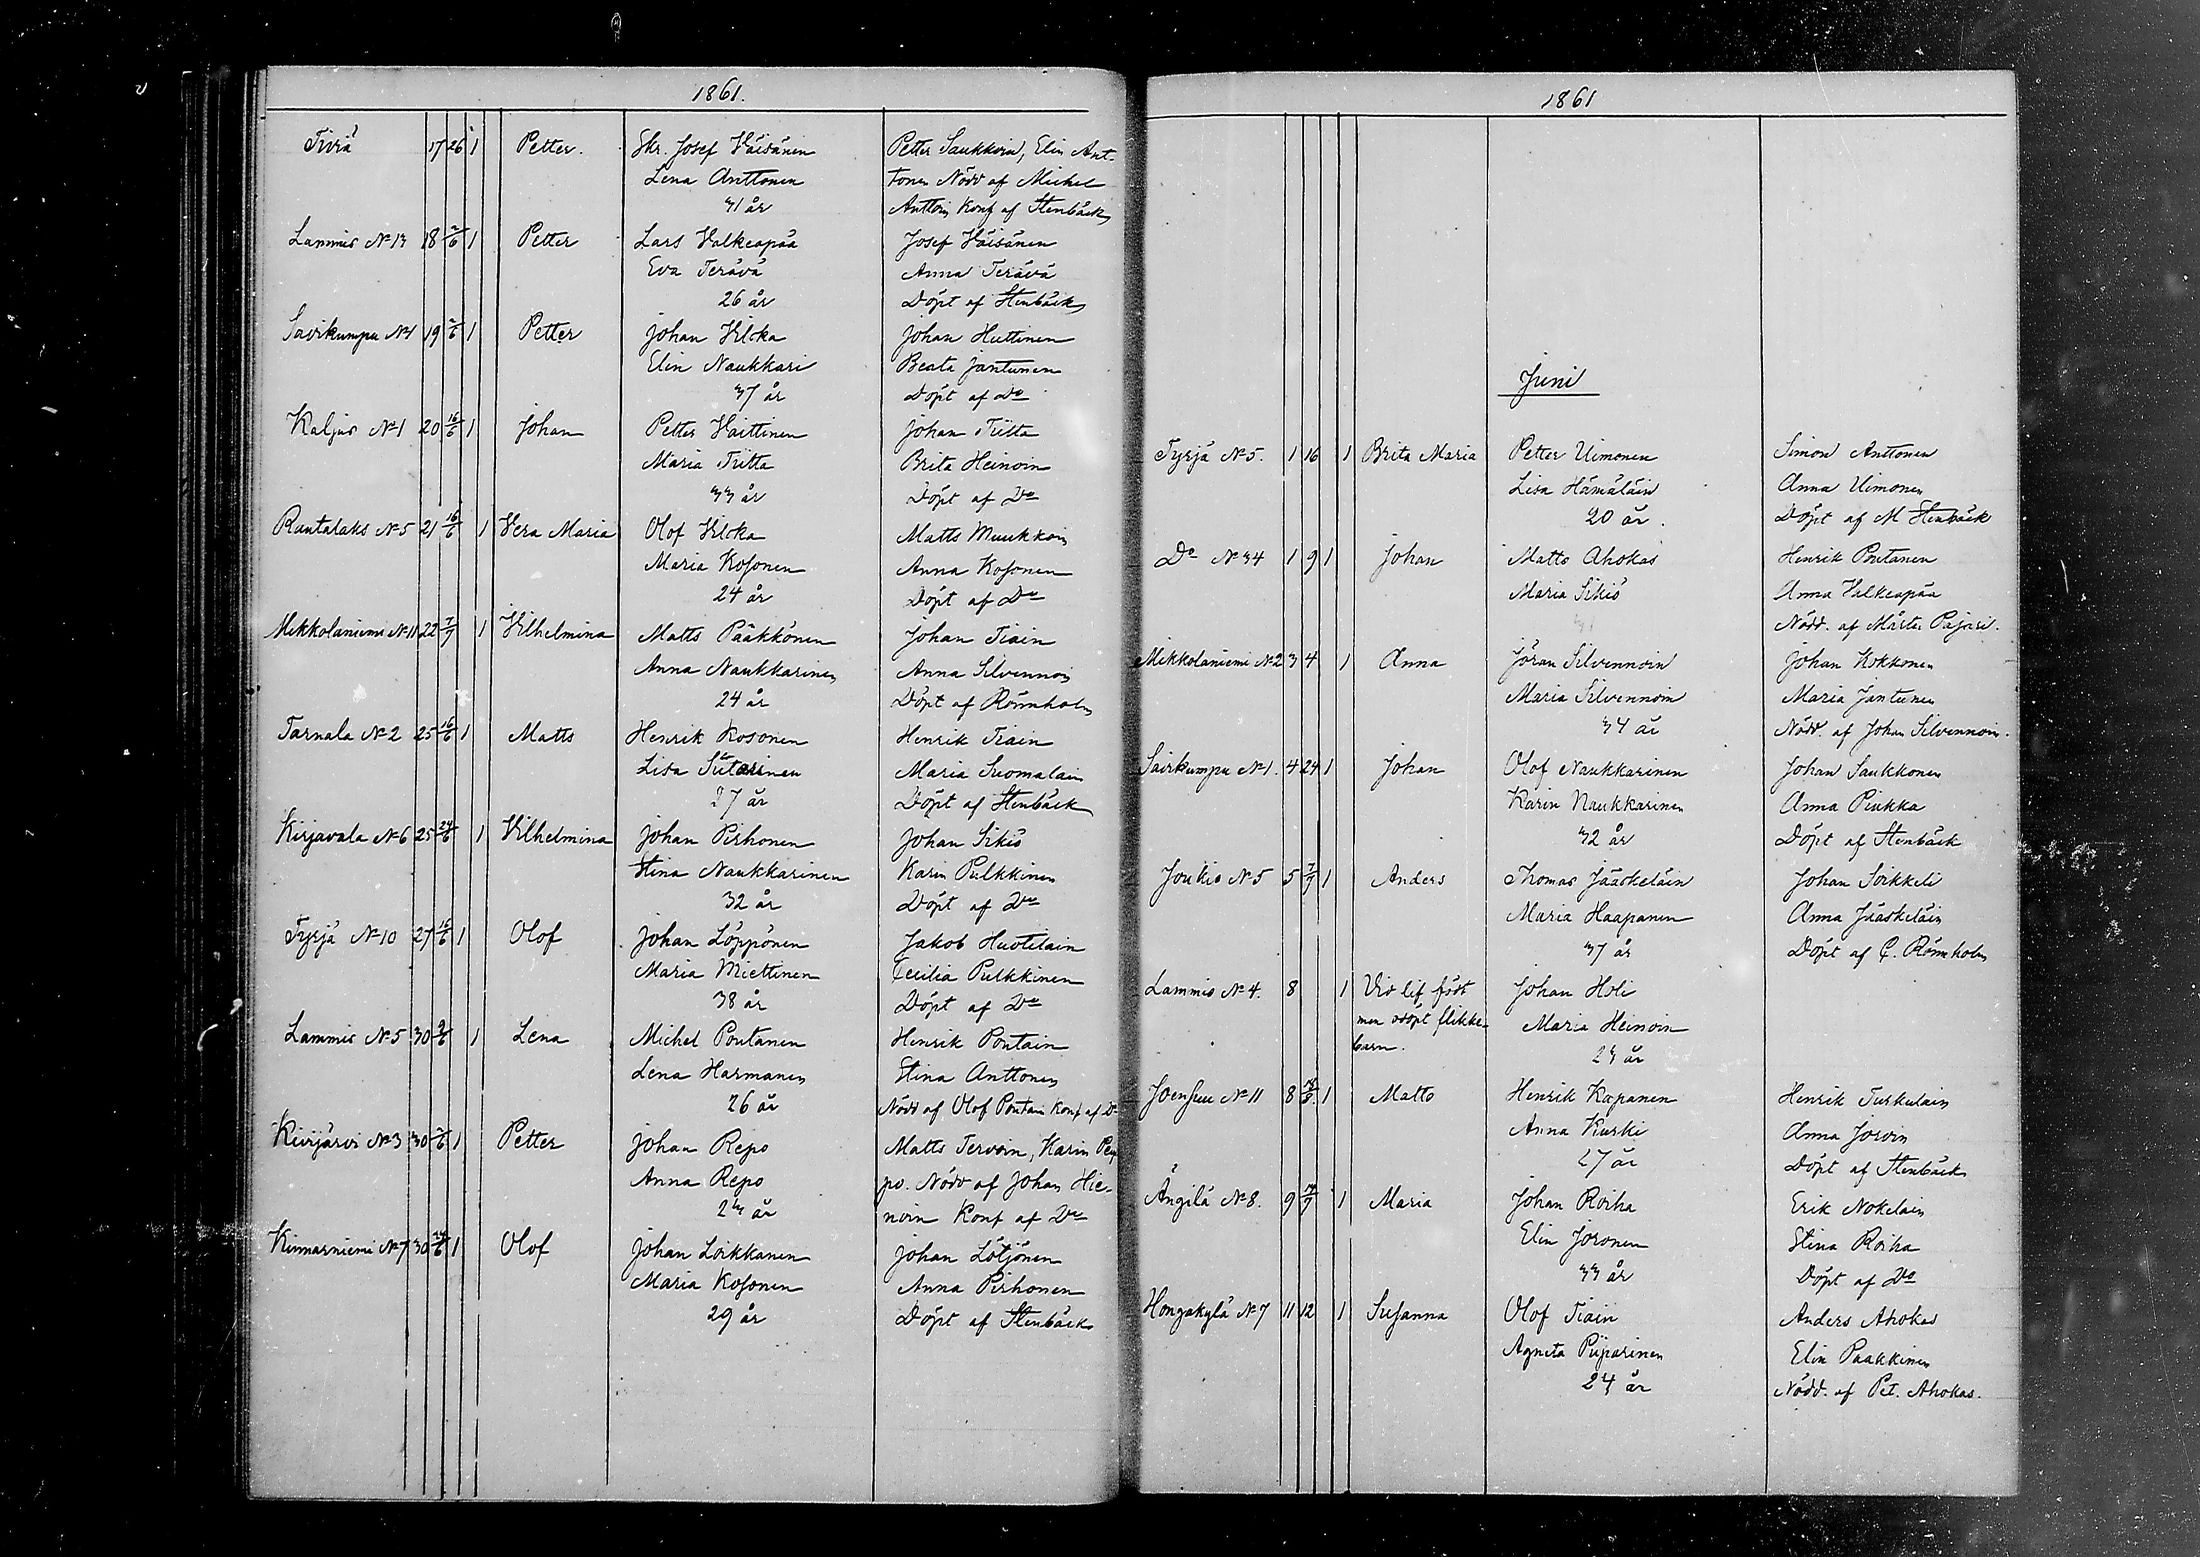 1861.
Tiviä 17 26 1 Petter. Skr. Josef Väisänen Petter Saukkoin, Elin Ant-
Lena Anttonen tonen Nödd af Michel
31 år Anttoin Konf af Stenbäck
Lammis No 13 18 2/6 1 Petter Lars Valkeapää Josef Väisänen
Eva Terävä Anna Terävä
26 år Döpt af Stenbäck
Savikumpu No 1 19 2/6 1 Petter Johan Vilska Johan Huttinen
Elin Naukkari Beata Jantunen
37 år Döpt af Do
Kaljus No 1 20 16/6 1 Johan Petter Vaittinen Johan Tiitta
Maria Tiitta Brita Heinoin
33 år Döpt af Do
Rantalaks No 5 21 16/6 1 Vera Maria Olof Vilska Matts Muukkoin
Maria Kosonen Anna Kosonen
24 år Döpt af Do
Mikkolaniemi No 11 22 7/7 1 Vilhelmina Matts Pääkkönen Johan Tiain
Anna Naukkarinen Anna Silvennoin
24 år Döpt af Rönnholm
Tarnala No 2 25 16/6 1 Matts Henrik Kosonen Henrik Tiain
Lisa Sutarinen Maria Suomalain
27 år Döpt af Stenbäck
Kirjavala No 6 25 24/6 1 Vilhelmina Johan Pirhonen Johan Sikiö
Stina Naukkarinen Karin Pulkkinen
32 år Döpt af Do
Tyrjä No 10 27 16/6 1 Olof Johan Löppönen Jakob Huotilain
Maria Miettinen Cecilia Pulkkinen
38 år Döpt af Do
Lammis No 5 30 9/6 1 Lena Michel Pontanen Henrik Pontain
Lena Harmanen Stina Anttonen
26 år Nödd af Olof Pontain Konf af Do
Kivijärvi No 3 30 2/6 1 Petter Johan Repo Matts Tervoin, Karin Rep
Anna Repo po. Nödd af Johan Hie-
23 år noin Konf af Do
Kinnarniemi No 7 30 24/6 1 Olof Johan Loikkanen Johan Lötjönen
Maria Kosonen Anna Pirhonen
29 år Döpt af Stenbäck
1861
Juni
Tyrjä No 5. 1 16 1 Brita Maria Petter Uimonen Simon Anttonen
Lisa Hämäläin Anna Uimonen
20 år. Döpt af M Stenbäck
Do No 34 1 9 1 Johan Matts Ahokas Henrik Pontanen
Maria Sikiö Anna Valkeapää
31 Nödd. af Mårten Pajari.
Mikkolaniemi No 2 3 4 1 Anna Jöran Silvennoin Johan Kokkonen
Maria Silvennoin Maria Jantunen
34 år Nödd. af Johan Silvennoin.
Savikumpu No 1. 4 24 1 Johan Olof Naukkarinen Johan Saukkonen
Karin Naukkarinen Anna Piukka
32 år Döpt af Stenbäck
Joukio No 5 5 7/7 1 Anders Thomas Jääskeläin Johan Soikkeli
Maria Haapanen Anna Jääskeläin
37 år Döpt af C. Rönnholm
Lammis No 4. 8 1 Vid lif född Johan Holi
men odöpt flikke- Maria Heinoin
barn. 23 år
Joensuu No 11 8 1 Matts Henrik Kapanen Henrik Turkulain
Anna Kurki Anna Joroin
27 år Döpt af Stenbäck
Ängilä No 8. 9 14/7 1 Maria Johan Roiha Erik Nokelain
Elin Joronen Stina Roiha
33 år Döpt af Do
Hongakylä No 7 11 12 1 Susanna Olof Tiain Anders Ahokas
Agneta Piiparinen Elin Paakkinen
24 år Nödd. af Pet. Ahokas.